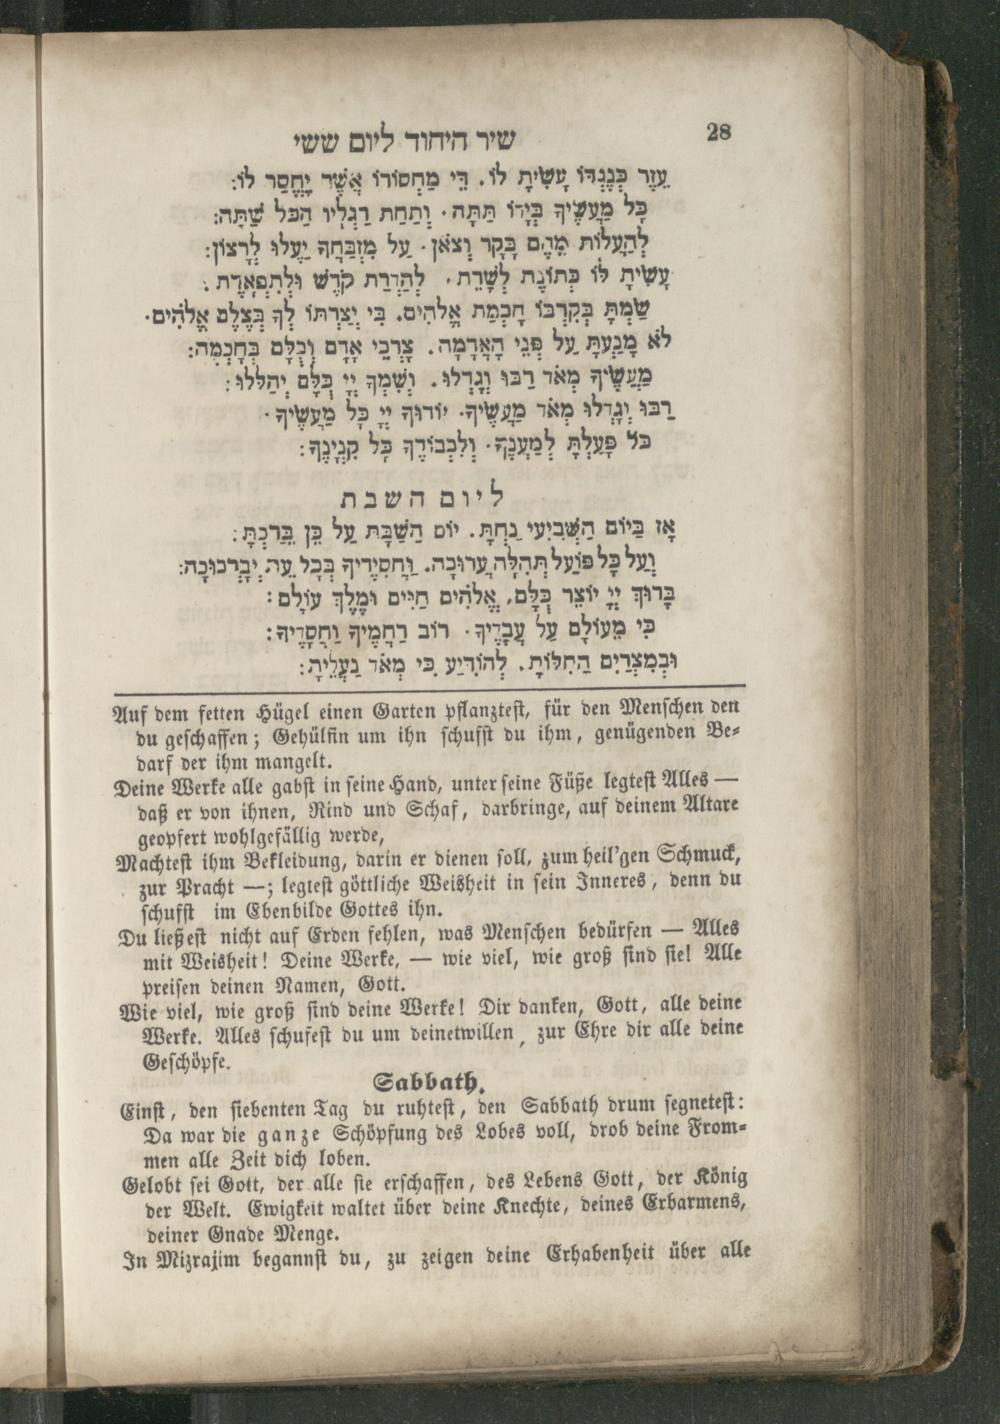 28
שיר היחוד ליום ששי
עֵזֶר כְּנֶגְדּוֹ עָשִׂיתָ לוֹ. דֵּי מַחְסוֹרוֹ אֲשֶׁר יֶחְסַר לוֹ:
כָּל מַעֲשֶׂיךָ בְּיָדוֹ תַּתָּה. וְתַחַת רַגְלָיו הַכֹּל שַׁתָּה:
לְהַעֲלוֹת מֵהֶם בָּקָר וְצֹאן. עַל מִזְבַּחֲךָ יַעֲלוּ לְרָצוֹן:
עָשִׂיתָ לּוֹ כְּתוֹנֶת לְשָׁרֵת. לְהַדְרַת קֹדֶשׁ וּלְתִפְאֶרֶת:
שַׂמְתָּ בְּקִרְבּוֹ חָכְמַת אֱלֹהִים. כִּי יְצַרְתּוֹ לְךָ בְּצֶלֶם אֱלֹהִים.
לֹא מָנַעְתָּ עַל פְּנֵי הָאֲדָמָה. צָרְכֵי אָדָם וְכֻלָּם בְּחָכְמָה:
מַעֲשֶׂיךָ מְאֹד רַבּוּ וְגָדְלוּ. וְשִׁמְךָ יְיָ כֻּלָּם יְהַלְלוּ:
רַבּוּ וְגָדְלוּ מְאֹד מַעֲשֶׂיךָ. יוֹדוּךָ יְיָ כָּל מַעֲשֶׂיךָ.
כֹּל פָּעַלְתָּ לְמַעֲנֶךָ. וְלִכְבוֹדֶךָ כָּל קִנְיָנֶךָ:
ליום השבת
אָז בַּיּוֹם הַשְּׁבִיעִי נַחְתָּ. יוֹם הַשַּׁבָּת עַל כֵּן בֵּרַכְתָּ:
וְעַל כָּל פּוֹעַל תְּהִלָּה עֲרוּכָה. וַחֲסִידֶיךָ בְּכָל עֵת יְבָרְכוּכָה:
בָּרוּךְ יְיָ יוֹצֵר כֻּלָּם. אֱלֹהִים חַיִּים וּמֶלֶךְ עוֹלָם:
כִּי מֵעוֹלָם עַל עֲבָדֶיךָ. רוֹב רַחֲמֶיךָ וַחֲסָדֶיךָ:
וּבְמִצְרַיִם הַחִלּוֹתָ. לְהוֹדִיעַ כִּי מְאֹד נַעֲלֵיתָ:
Auf dem fetten Hügel einen Garten pflanztest, für den Menschen den
du geschaffen; Gehülfin um ihn schufst du ihm, genügenden Be-
darf der ihm mangelt.
Deine Werke alle gabst in seine Hand, unter seine Füße legtest Alles —
daß er von ihnen, Rind und Schaf, darbringe, auf deinem Altare
geopfert wohlgefällig werde,
Machtest ihm Bekleidung, darin er dienen soll, zum heil'gen Schmuck,
zur Pracht —; legtest göttliche Weisheit in sein Inneres, denn du
schufst im Ebenbilde Gottes ihn.
Du ließest nicht auf Erden fehlen, was Menschen bedürfen — Alles
mit Weisheit! Deine Werke, — wie viel, wie groß sind sie! Alle
preisen deinen Namen, Gott.
Wie viel, wie groß sind deine Werke! Dir danken, Gott, alle deine
Werke. Alles schufest du um deinetwillen, zur Ehre dir alle deine
Geschöpfe.
Sabbath.
Einst, den siebenten Tag du ruhtest, den Sabbath drum segnetest:
Da war die ganze Schöpfung des Lobes voll, drob deine From-
men alle Zeit dich loben.
Gelobt sei Gott, der alle sie erschaffen, des Lebens Gott, der König
der Welt. Ewigkeit waltet über deine Knechte, deines Erbarmens,
deiner Gnade Menge.
In Mizrajim begannst du, zu zeigen deine Erhabenheit über alle